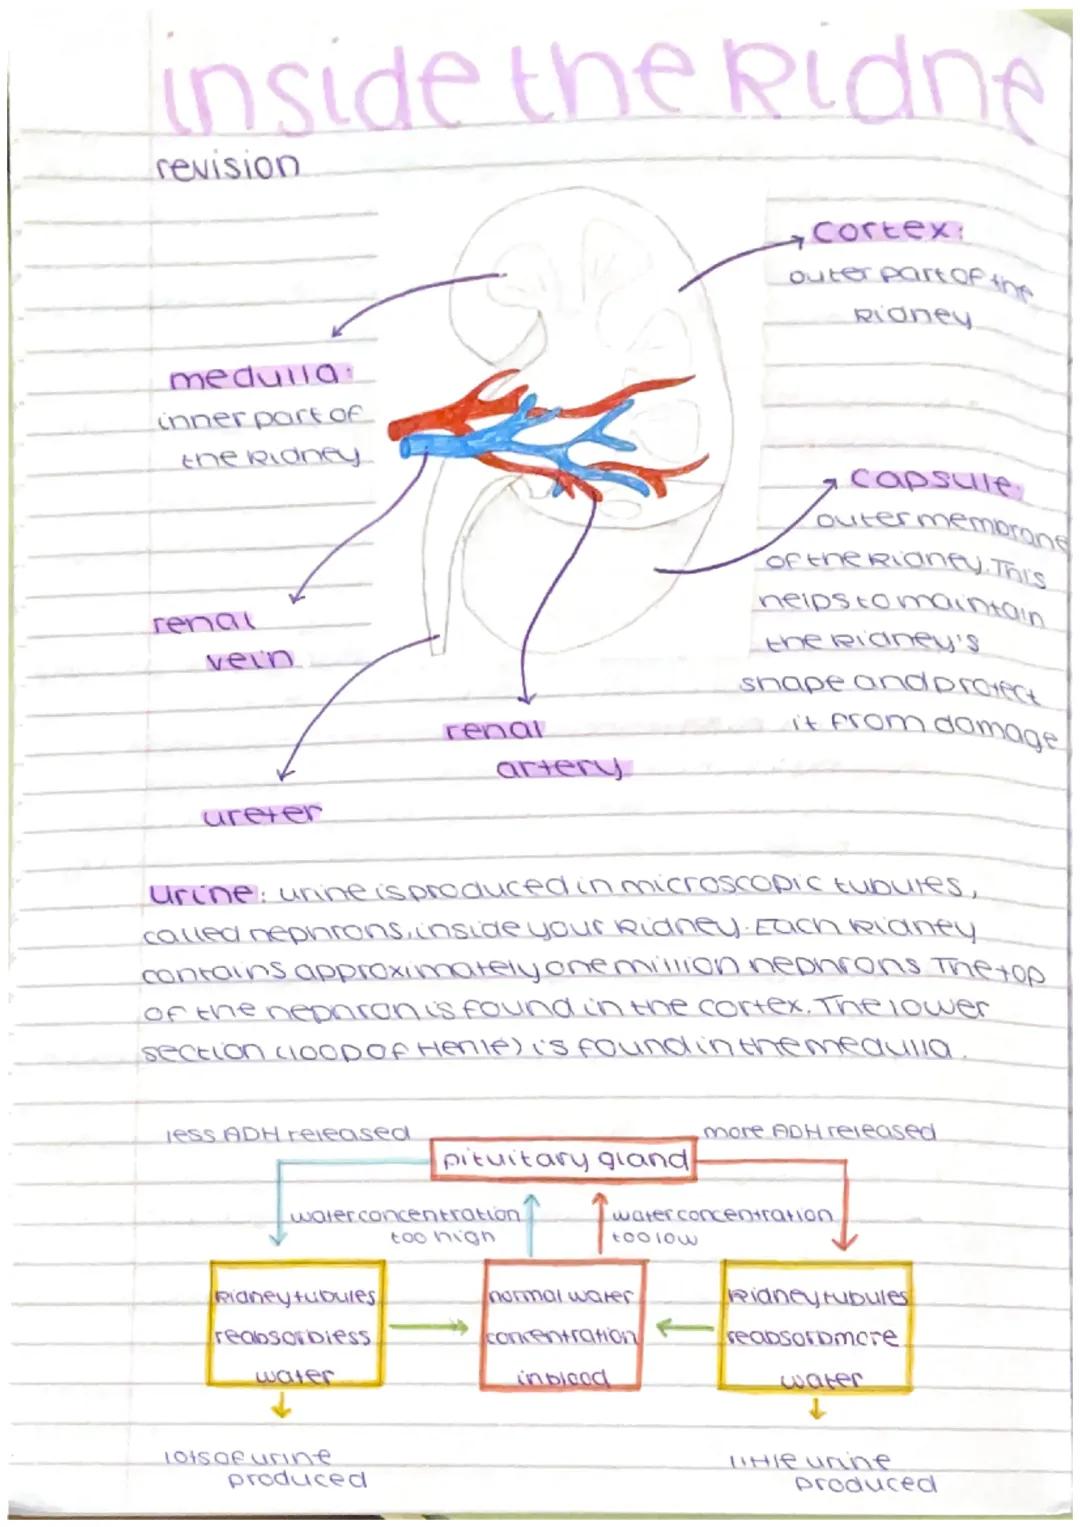 inside the Kidne
revision
cortex:
outer part of the
kidney
medulla:
inner part of
the kidney
capsule:
outer membrane
of the kidney. This
helps to maintain
the kidney's
shape and protect
it from damage
renal
vein
renal
artery
ureter
urine: urine is produced in microscopic tubules,
called nephrons, inside your kidney. Each kidney
contains approximately one million nephrons. The top
of the nephron is found in the cortex. The lower
section (loop of Henle) is found in the medulla.
less ADH released
more ADH released
pituitary gland
water concentration
too high
water concentration
too low
kidney tubules
reabsorb less
water
normal water
concentration
in blood
kidney tubules
reabsorb more
water
lots of urine
produced
little urine
produced